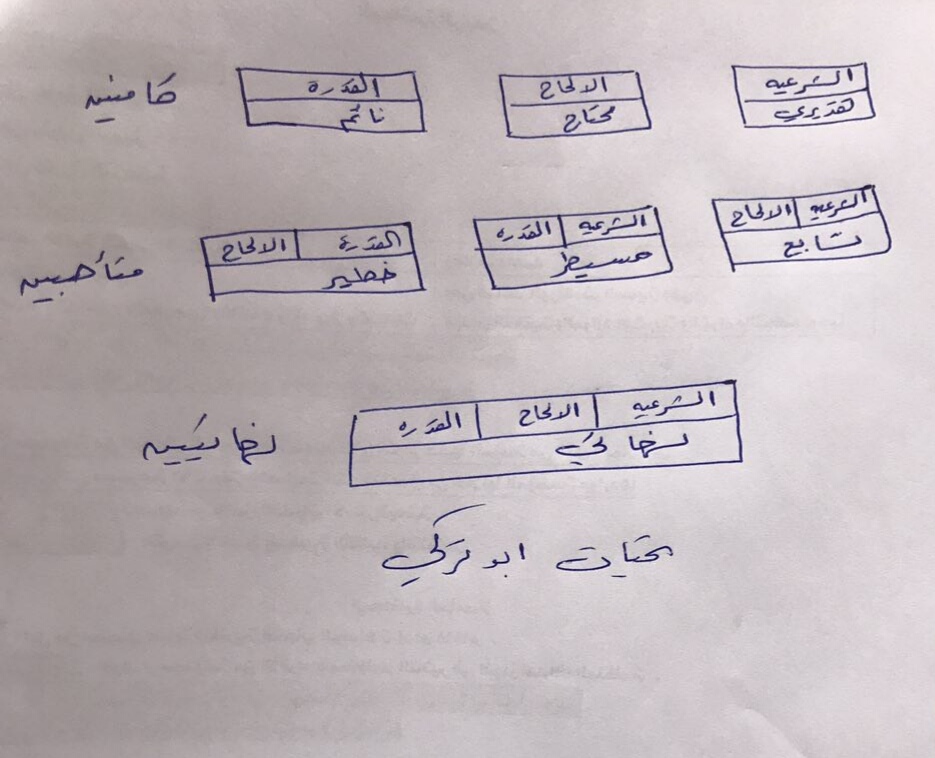 الشرعيه الالحاح القدرة كامنين
تقديري محتاج نائم
الشرعيه الالحاح الشرعيه القدره القدرة الالحاح متأهبين
تابع مسيطر خطير
الشرعيه الالحاح القدره نهائيين
نهائي
تحيات ابو تركي